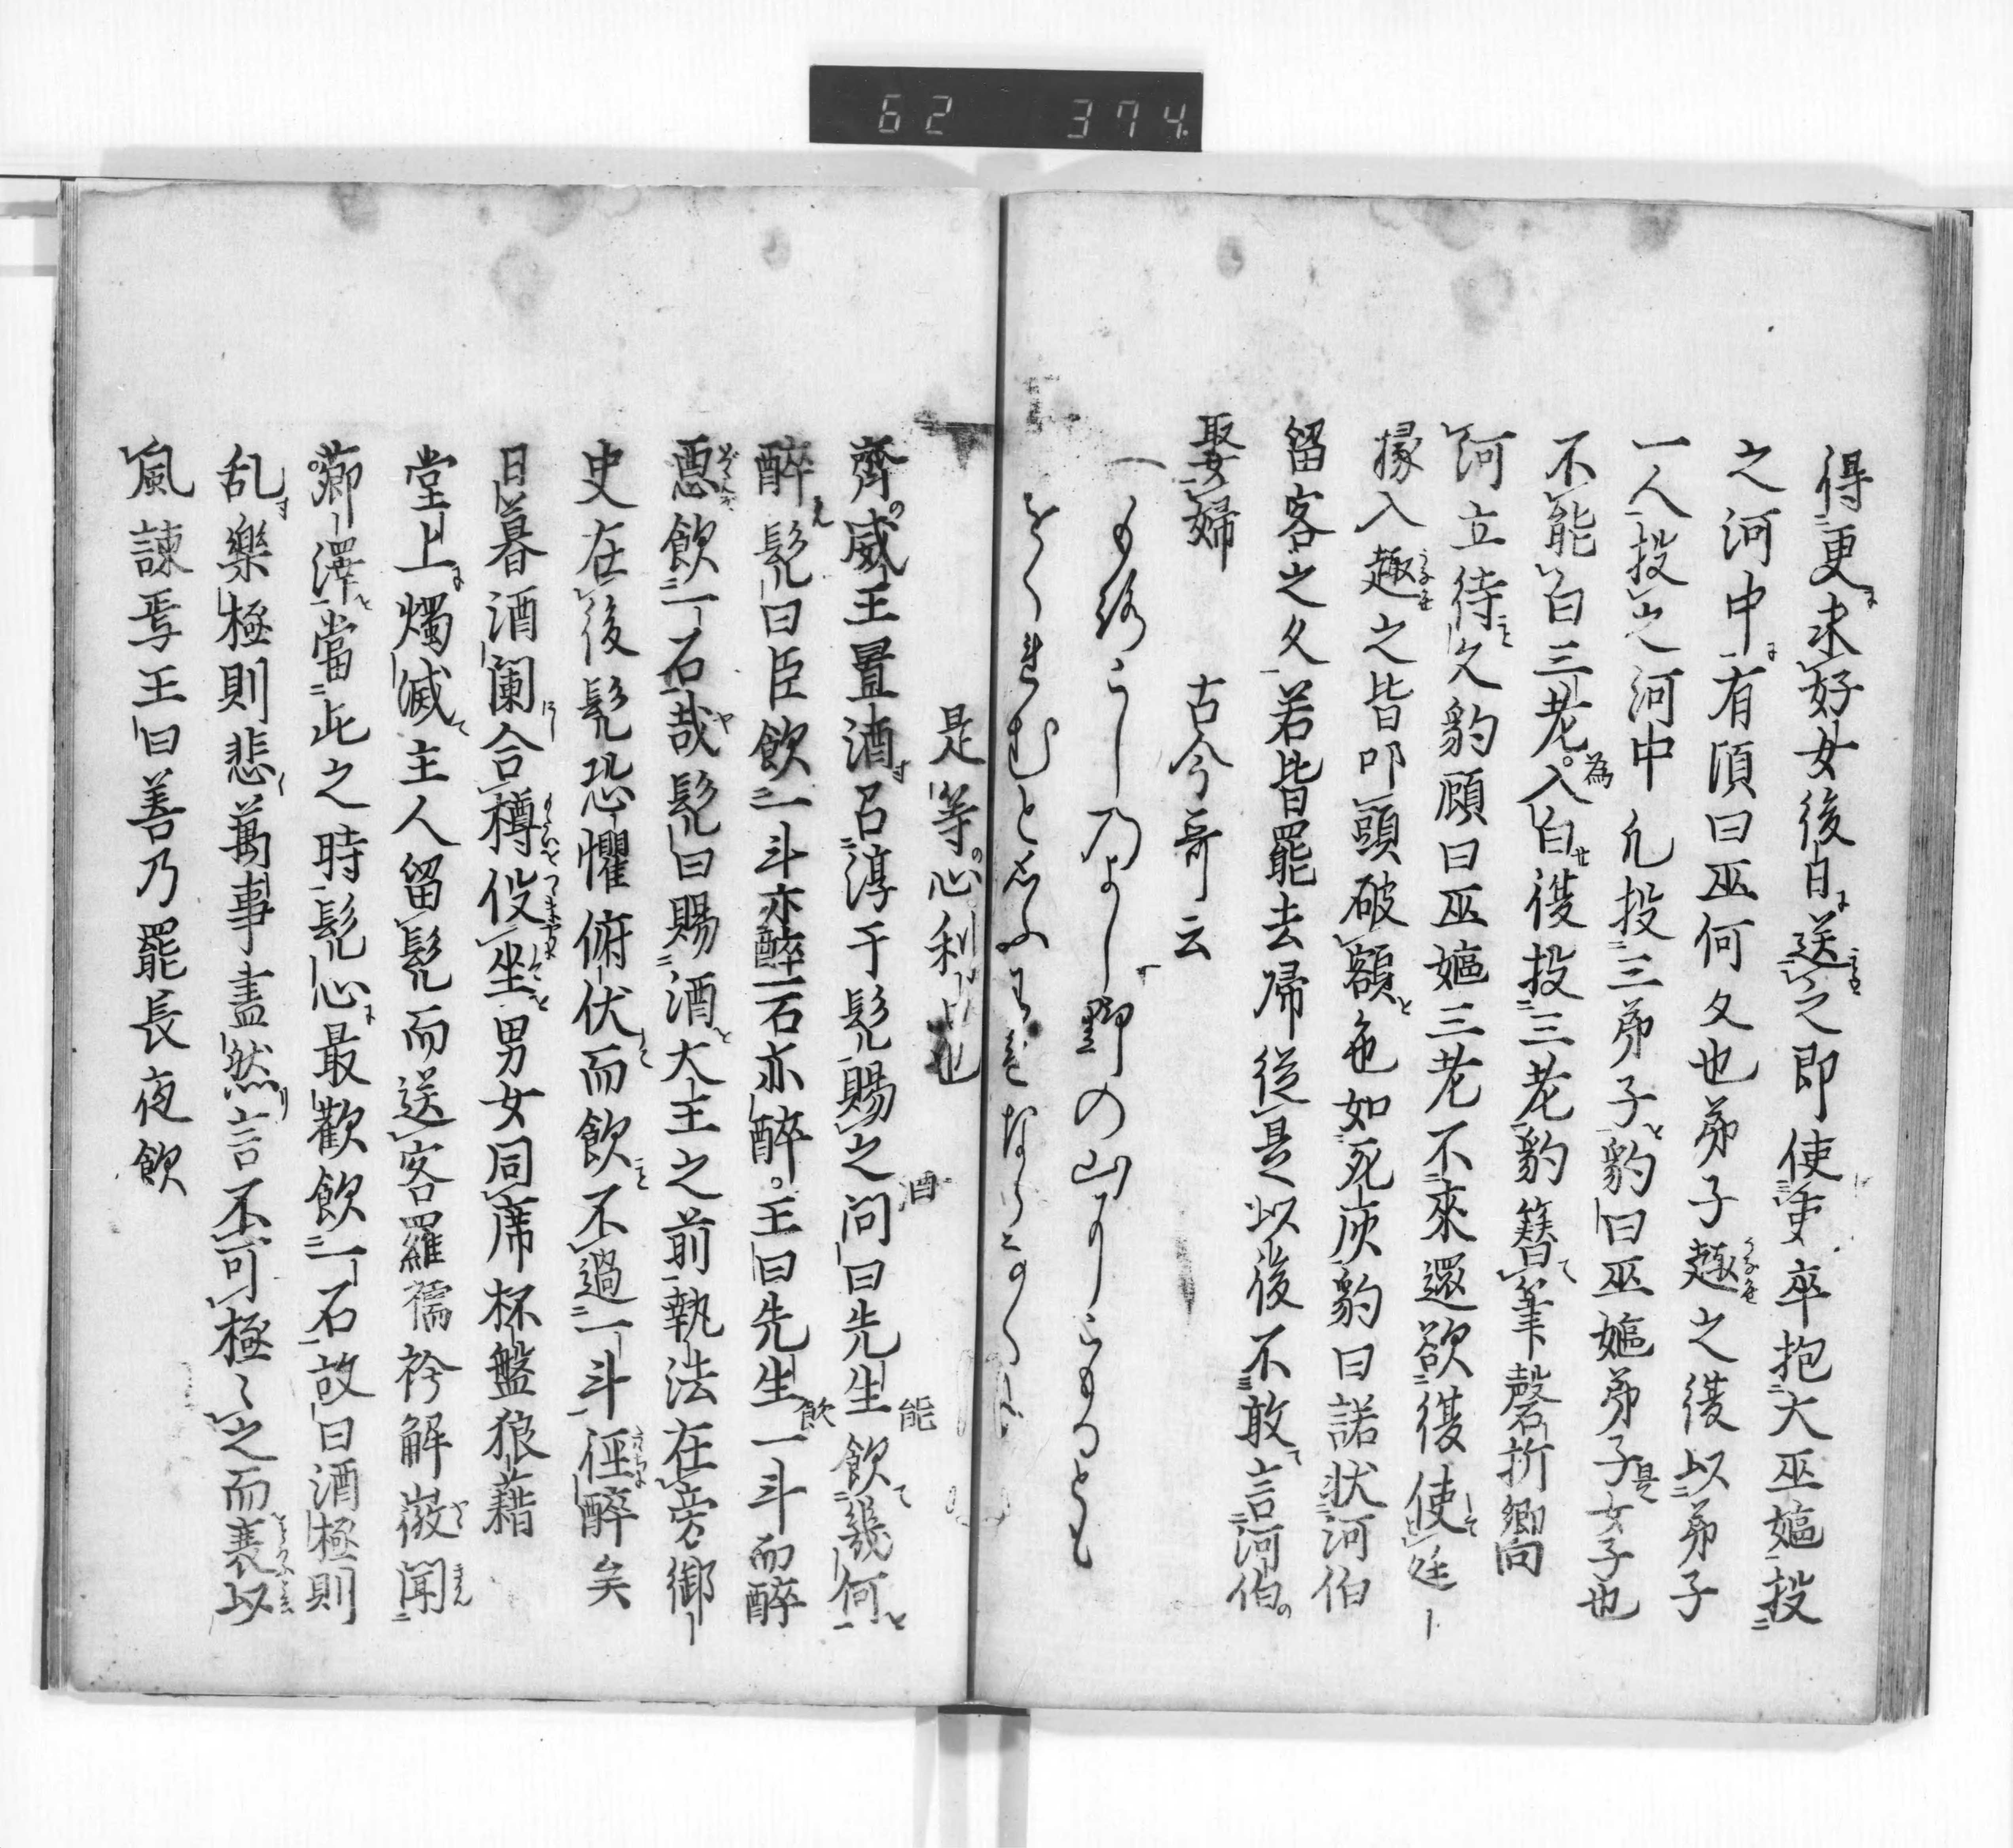 62 374
得更求好女後日送之即使吏卒抱大巫嫗投
之河中有頃曰巫何久也弟子趣之復以弟子
一人投之河中凡投三弟子豹曰巫嫗弟子是女子也
不能白三老為入白復投三老豹簪筆磬折嚮向
河立待久豹顧曰巫嫗三老不來還欲復使廷
掾入趣之皆叩頭破額色如死灰豹曰諾状河伯
留客之久若皆罷去帰従是以後不敢言河伯
娶婦 古今哥云
一もろこしの よし野の山にこもるとも
をくれむとおもふわれならなくに
是等心利口也
齊威王置酒召淳于髠賜之酒問曰先生能飲幾何
醉髠曰臣飲一斗亦醉一石亦醉王曰先生飲一斗而醉
惡飲一石哉髠曰賜酒大王之前執法在旁御
史在後髠恐懼俯伏而飲不過一斗徑醉矣
日暮酒闌合樽促坐男女同席杯盤狼藉
堂上燭滅主人留髠而送客羅襦衿解微聞
薌澤當此之時髠心最歡飲一石故曰酒極則
乱樂極則悲萬事盡然言不可極〻之而衰以
風諫焉王曰善乃罷長夜飲